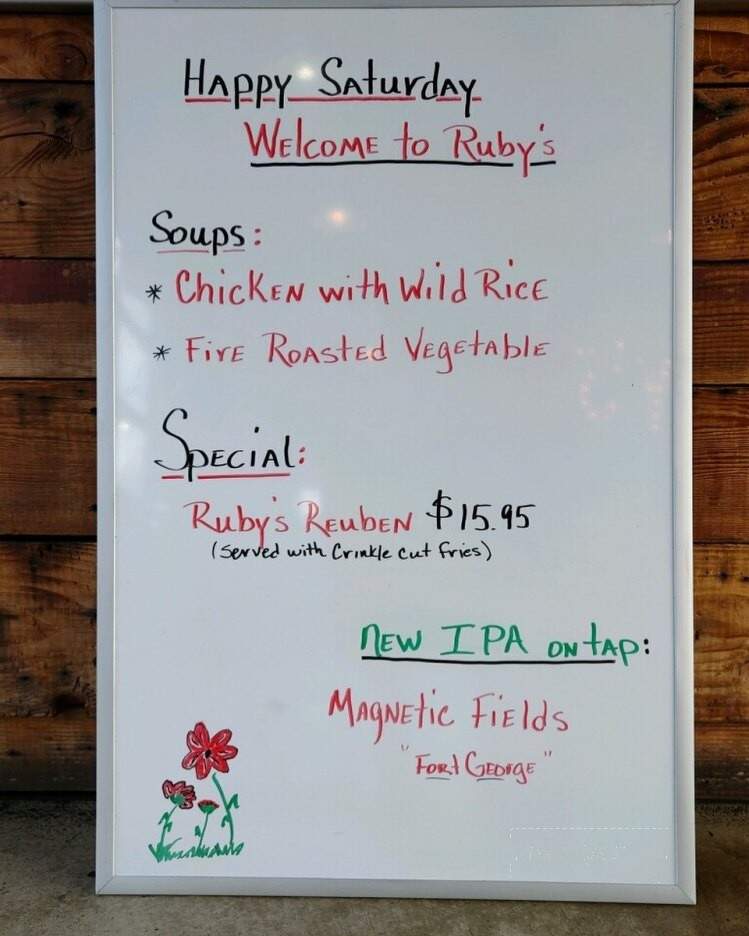 Happy Saturday
Welcome to Ruby's
Soups:
* Chicken with Wild Rice
* Fire Roasted Vegetable
Special:
Ruby's Reuben $15.95
(Served with Crinkle cut fries)
New IPA on tap:
Magnetic Fields
"Fort George"